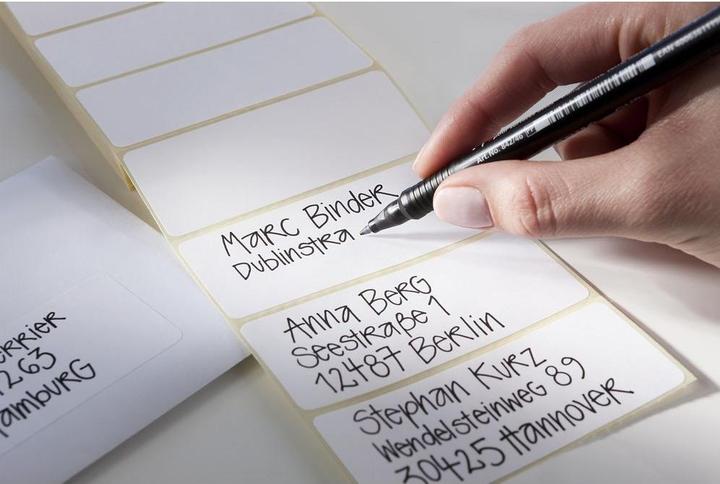 Marc Binder
Dublinstra
Anna Berg
Seestraße 1
12487 Berlin
Stephan Kurz
Wendelsteinweg 89
30425 Hannover
errier
263
amburg
Art.No.